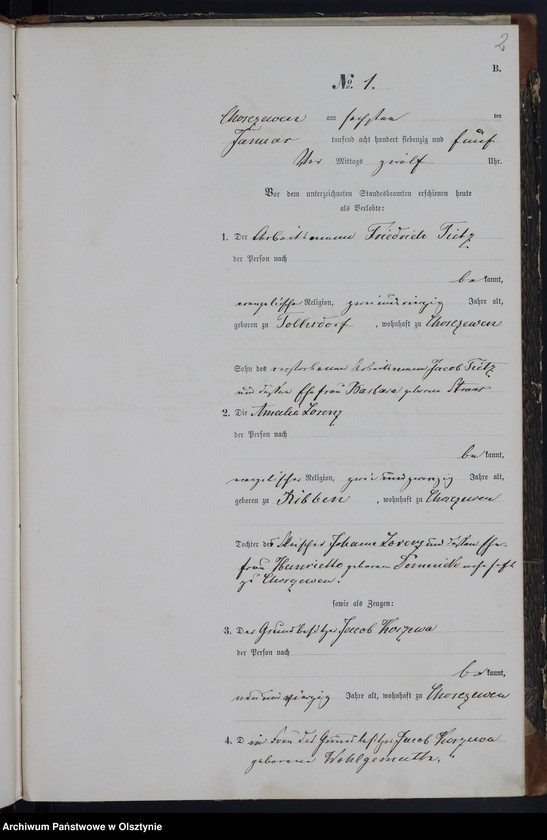 2
B.
No. 1.
Chorczewen am sechsten ten
Januar tausend acht hundert siebenzig und fünf
Uhr Mittags zwölf Uhr.
Vor dem unterzeichneten Standesbeamten erschienen heute
als Verlobte:
1. Der Arbeitsmann Friedrich Tietz
der Person nach
be kannt,
evangelischer Religion, zwei und vierzig Jahre alt,
geboren zu , wohnhaft zu Chorczewen
Sohn des verstorbenen Arbeitsmann Jacob Tietz
und dessen Ehefrau Barbara geborene
2. Die Amalie Lorenz
der Person nach
be kannt,
evangelischer Religion, zwei und zwanzig Jahre alt,
geboren zu Ribben , wohnhaft zu Chorczewen
Tochter des Johann Lorenz und dessen Ehe-
frau Henriette geborene Dominick wohnhaft
zu Chorczewen.
sowie als Zeugen:
3. Der Grundbesitzer Jacob Korzewa
der Person nach
be kannt,
neun und vierzig Jahre alt, wohnhaft zu Chorczewen
4. D ie Frau des Grundbesitzer Jacob Korzewa
geborene Wohlgemuth.
Archiwum Państwowe w Olsztynie